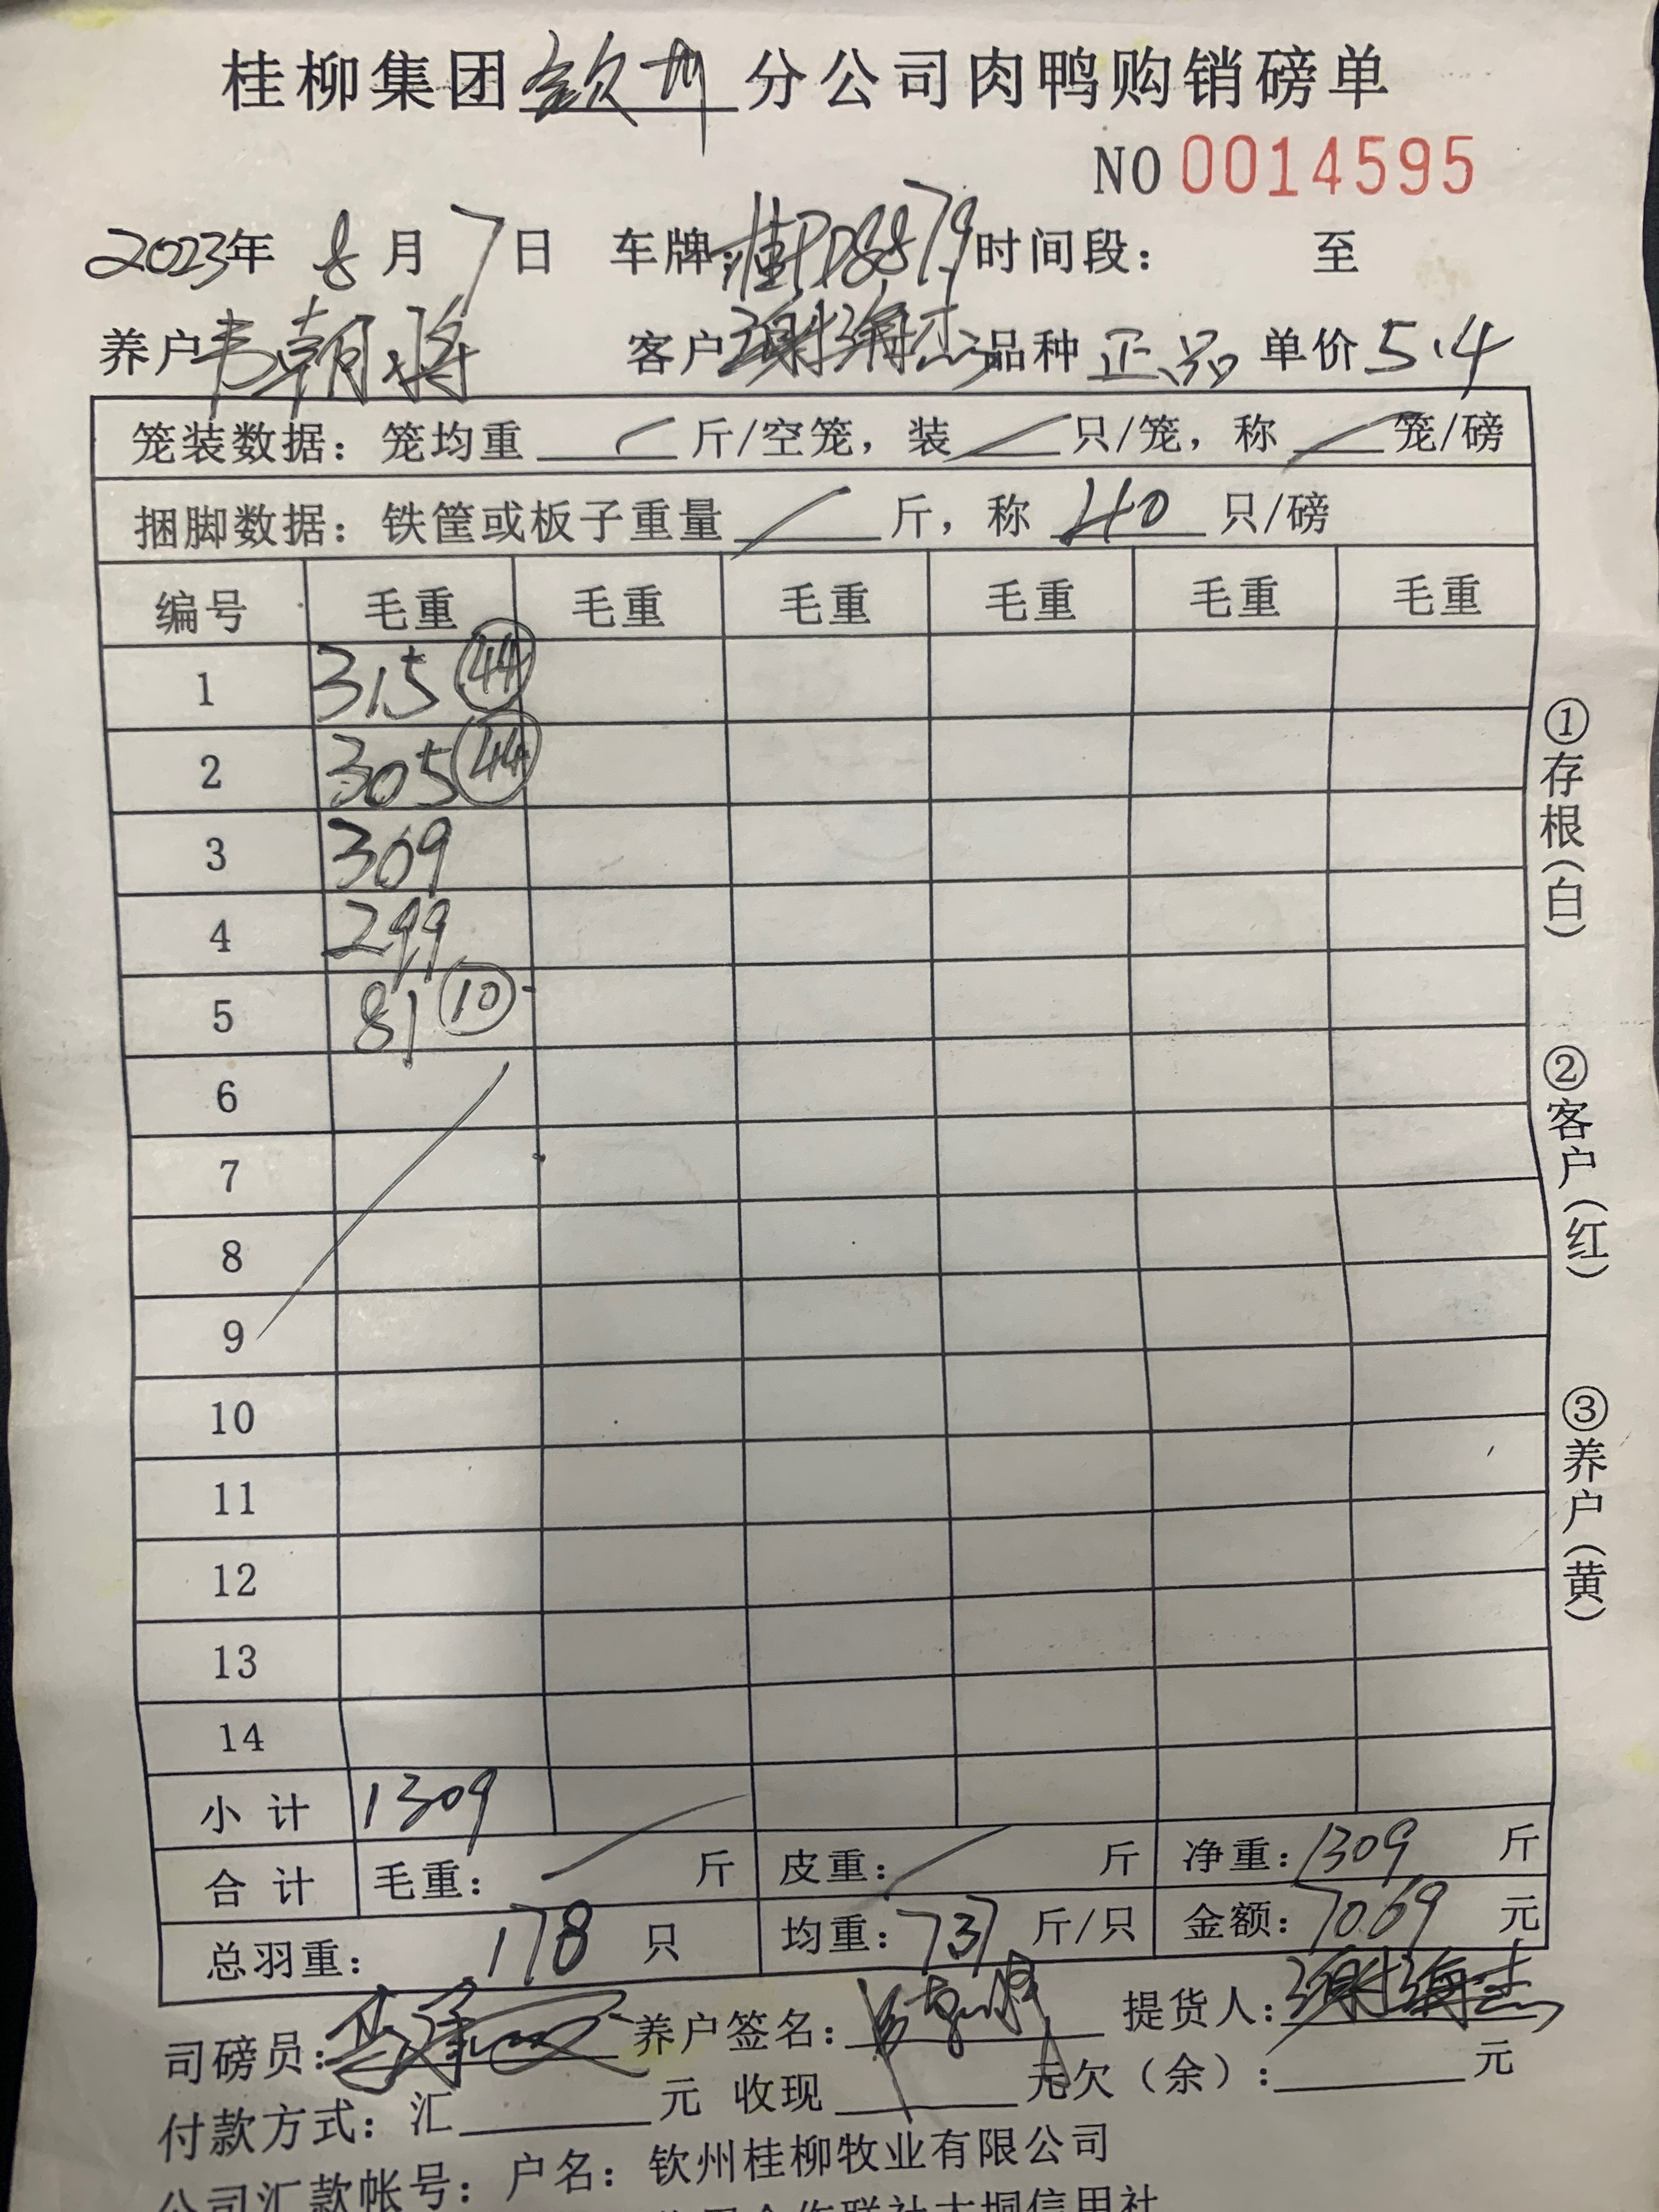 桂柳集团钦州分公司肉鸭购销磅单
NO 0014595
2023年 8月 7日 车牌:桂PD8879 时间段: 至
养户 韦朝将 客户 谢海杰 品种 正品 单价 5.4
笼装数据:笼均重 斤/空笼,装 只/笼,称 笼/磅
捆脚数据:铁筐或板子重量 斤,称 40 只/磅
编号 毛重 毛重 毛重 毛重 毛重 毛重
1 315 44
2 305 44
3 309
4 299
5 81 10
6
7
8
9
10
11
12
13
14
小计 1309
合计 毛重: 斤 皮重: 斤 净重:1309 斤
总羽重: 178 只 均重:7.37 斤/只 金额:7069 元
司磅员: 养户签名: 提货人:谢海杰
付款方式:汇 元 收现 元 欠(余): 元
公司汇款帐号:户名:钦州桂柳牧业有限公司
①存根(白)
②客户(红)
③养户(黄)